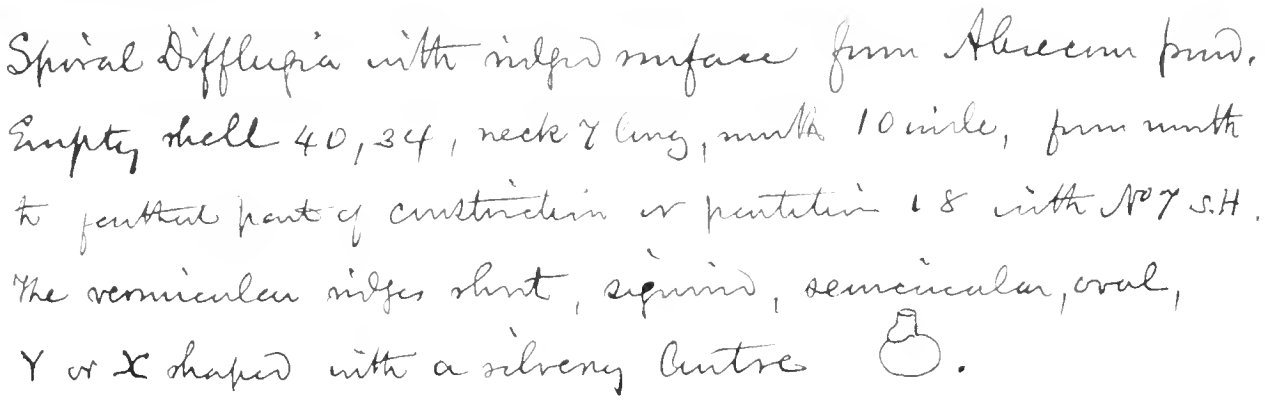 Spiral Difflugia with ridged surface from Absecom pond.
Empty shell 40, 34, neck 7 long, mouth 10 wide, from mouth
to farthest part of constriction or partition 18 with No 7 S.H.
The vermicular ridges short, sigmoid, semicircular, oval,
Y or X shaped with a silvery lustre .